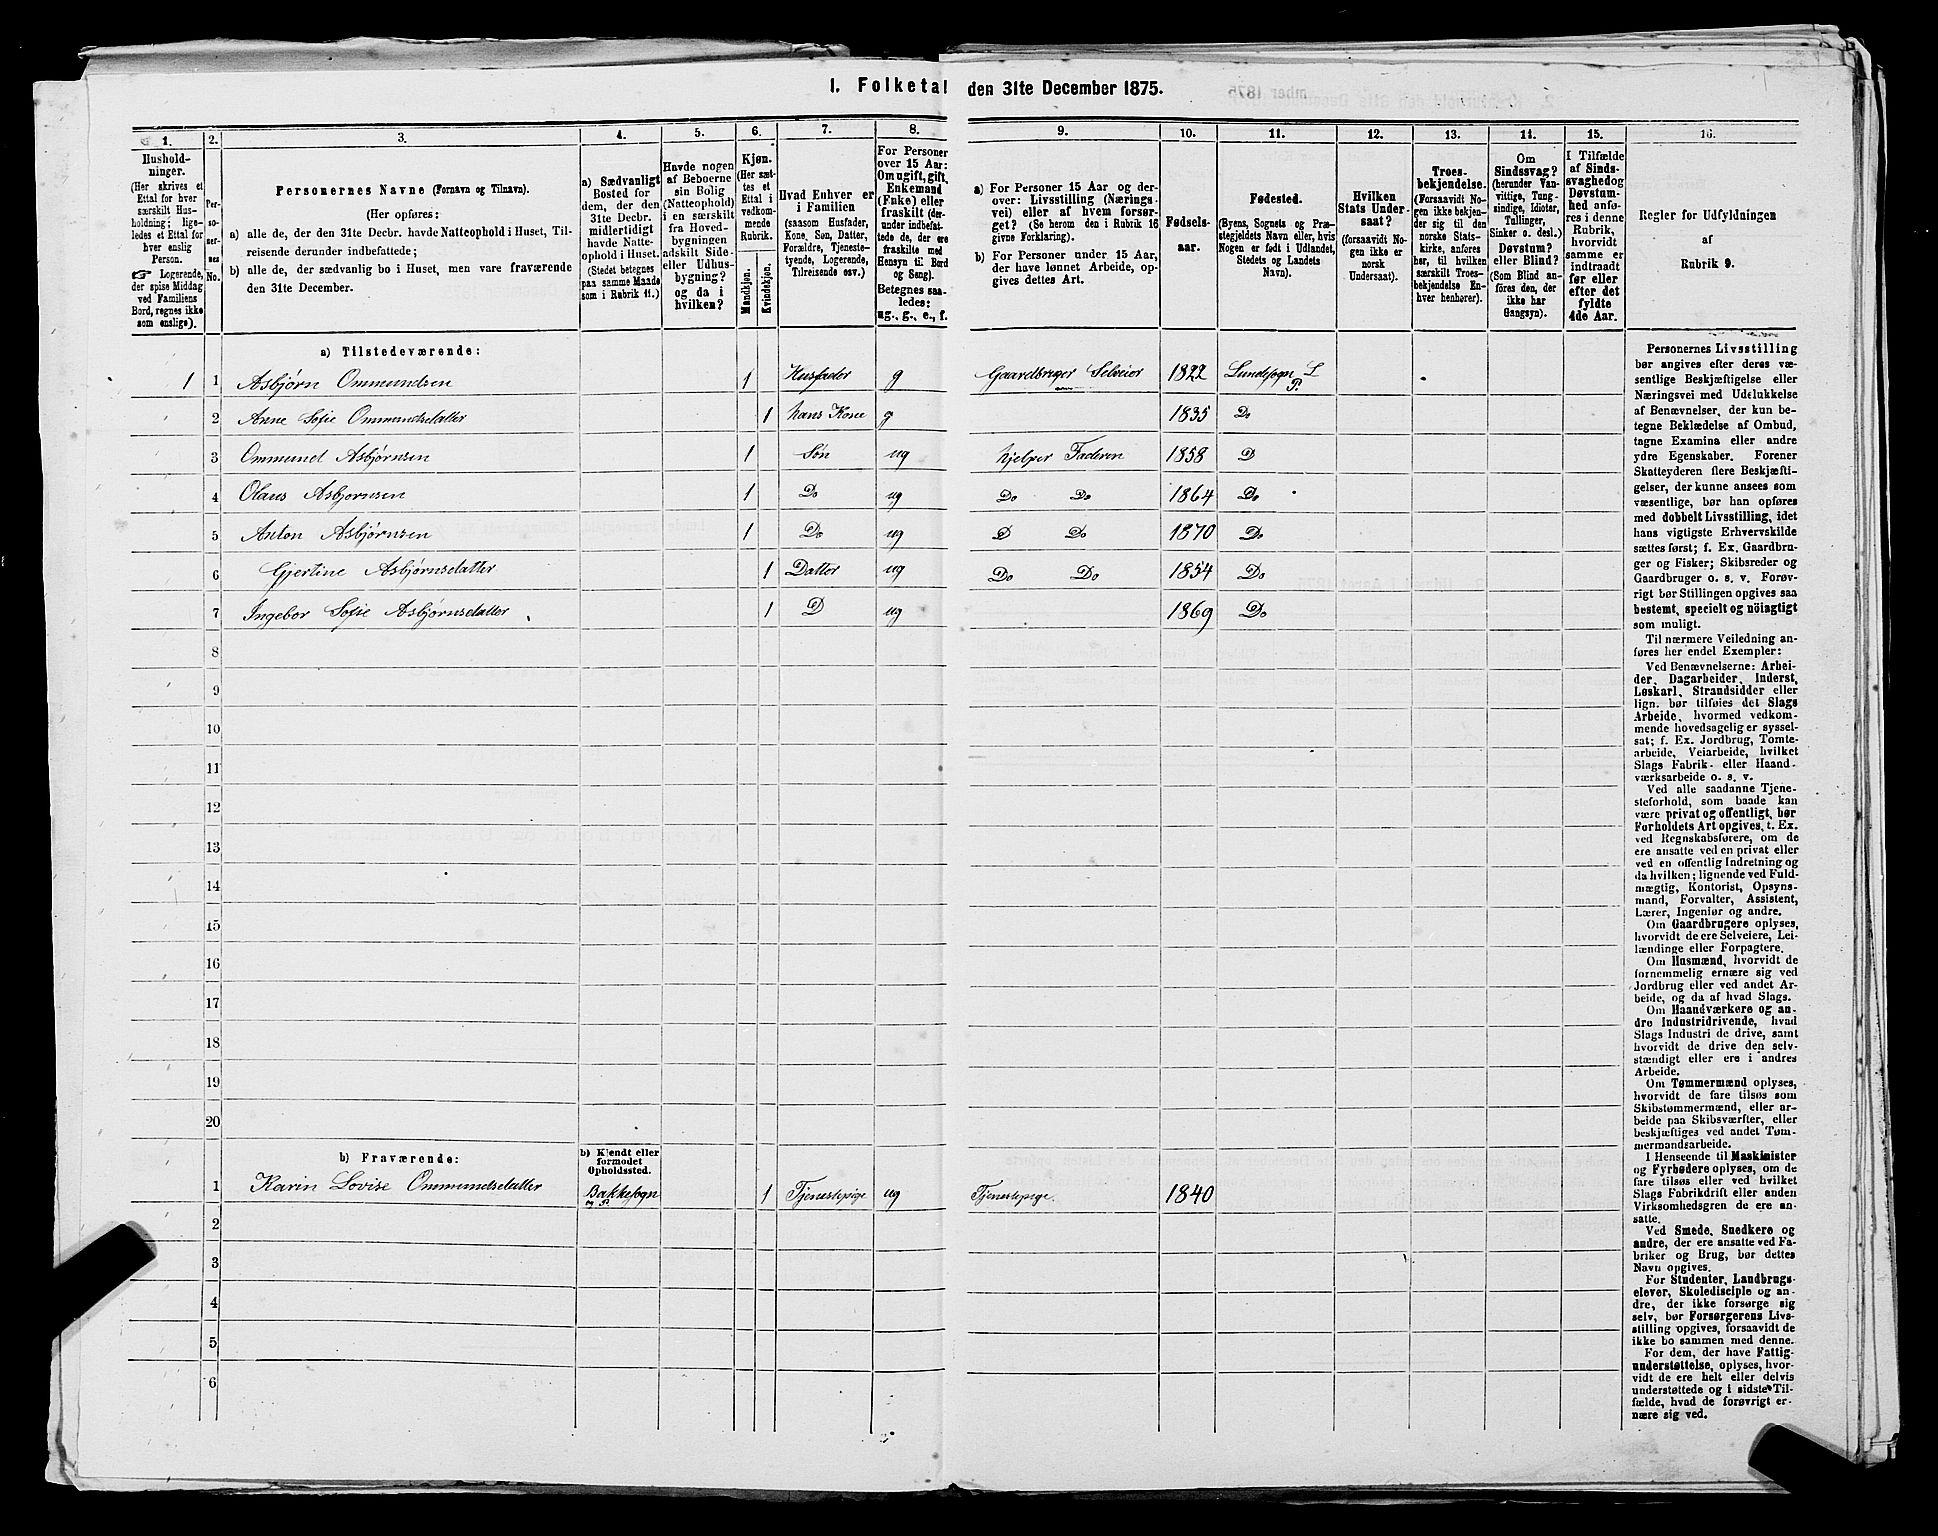 I. Folketal den 31te December 1875.
1.
2.
3.
4.
5.
6.
7.
8.
9.
10.
11.
12.
13.
14.
15.
16.
Hushold-
ninger.
(Her skrives et
Ettal for hver
særskilt Hus-
holdning; lige-
ledes et Ettal for
hver enslig
Person.
☞ Logerende,
der spise Middag
ved Familiens
Bord, regnes ikke
som enslige).
Per-
so-
ner-
nes
No.
Personernes Navne (Fornavn og Tilnavn).
(Her opføres:
a) alle de, der den 31te Decbr. havde Natteophold i Huset, Til-
reisende derunder indbefattede;
b) alle de, der sædvanlig bo i Huset, men vare fraværende
den 31te December.
a) Sædvanligt
Bosted for
dem, der den
31te Decbr.
midlertidigt
havde Natte-
ophold i Huset.
(Stedet betegnes
paa samme Maade
som i Rubrik 11.)
Havde nogen
af Beboerne
sin Bolig
(Natteophold)
i en særskilt
fra Hoved-
bygningen
adskilt Side-
eller Udhus-
bygning?
og da i
hvilken?
Kjøn.
(Her sæt-
tes et
Ettal i
vedkom-
mende
Rubrik.
Mandkjøn.
Kvindekjøn.
Hvad Enhver er
i Familien
(saasom Husfader,
Kone, Søn, Datter,
Forældre, Tjeneste-
tyende, Logerende,
Tilreisende osv.)
For Personer
over 15 Aar:
Om ugift, gift,
Enkemand
(Enke) eller
fraskilt (der-
under indbefat-
tede de, der ere
fraskilte med
Hensyn til Bord
og Seng).
Betegnes saa-
ledes:
ug., g., e., f.
a) For Personer 15 Aar og der-
over: Livsstilling (Nærings-
vei) eller af hvem forsør-
get? (Se herom den i Rubrik 16
givne Forklaring).
b) For Personer under 15 Aar,
der have lønnet Arbeide, op-
gives dettes Art.
Fødsels-
aar.
Fødested.
(Byens, Sognets og Præ-
stegjeldets Navn eller, hvis
Nogen er født i Udlandet,
Stedets og Landets
Navn).
Hvilken
Stats Under-
saat?
(forsaavidt No-
gen ikke er
norsk
Undersaat).
Troes-
bekjendelse.
(Forsaavidt No-
gen ikke bekjen-
der sig til den
norske Stats-
kirke, anføres
her, til hvilken
særskilt Troes-
bekjendelse En-
hver henhører).
Om
Sindssvag?
(herunder Van-
vittige, Tung-
sindige, Idioter,
Tullinger,
Sinker o. desl.)
Døvstum?
eller Blind?
(Som Blind an-
føres den, der
ikke har
Gangsyn).
I Tilfælde
af Sinds-
svaghed og
Døvstum-
hed anfø-
res i denne
Rubrik,
hvorvidt
samme er
indtraadt
før eller
efter det
fyldte
4de Aar.
Regler for Udfyldningen
af
Rubrik 9.
a) Tilstedeværende:
1 1 Asbjørn Ommundsen 1 Husfader g Gaardbruger Selveier 1822 Lundesogn L P.
2 Anne Sofie Ommundsdatter 1 hans Kone g 1835 Do
3 Ommund Asbjørnsen 1 Søn ug hjelper Faderen 1858 D
4 Olaus Asbjørnsen 1 Do ug Do Do 1864 Do
5 Anton Asbjørnsen 1 Do ug D Do 1870 Do
6 Gjertine Asbjørnsdatter 1 Datter ug Do Do 1854 Do
7 Ingebor Sofie Asbjørnsdatter 1 D ug 1869 Do
8
9
10
11
12
13
14
15
16
17
18
19
20
b) Fraværende:
b) Kjendt eller
formodet
Opholdssted.
1 Karin Lovise Ommundsdatter Bakkesogn og P. 1 Tjenestepige ug Tjenestepige. 1840
2
3
4
5
6
Personernes Livsstilling
bør angives efter deres væ-
sentlige Beskjæftigelse eller
Næringsvei med Udelukkelse
af Benævnelser, der kun be-
tegne Beklædelse af Ombud,
tagne Examina eller andre
ydre Egenskaber. Forener
Skatteyderen flere Beskjæfti-
gelser, der kunne ansees som
væsentlige, bør han opføres
med dobbelt Livsstilling, idet
hans vigtigste Erhvervskilde
sættes først; f. Ex. Gaardbru-
ger og Fisker; Skibsreder og
Gaardbruger o. s. v. Forøv-
rigt bør Stillingen opgives saa
bestemt, specielt og nöiagtigt
som muligt.
Til nærmere Veiledning an-
føres her endel Exempler:
Ved Benævnelserne: Arbei-
der, Dagarbeider, Inderst,
Løskarl, Strandsidder eller
lign. bør tilføies det Slags
Arbeide, hvormed vedkom-
mende hovedsagelig er syssel-
sat; f. Ex. Jordbrug, Tomte-
arbeide, Veiarbeide, hvilket
Slags Fabrik- eller Haand-
værksarbeide o. s. v.
Ved alle saadanne Tjene-
steforhold, som baade kan
være privat og offentligt, bør
Forholdets Art opgives, t. Ex.
ved Regnskabsførere, om de
ere ansatte ved en privat eller
ved en offentlig Indretning og
da hvilken; lignende ved Fuld-
mægtig, Kontorist, Opsyns-
mand, Forvalter, Assistent,
Lærer, Ingeniør og andre.
Om Gaardbrugere oplyses,
hvorvidt de ere Selveiere, Lei-
lændinge eller Forpagtere.
Om Husmænd, hvorvidt de
fornemmelig ernære sig ved
Jordbrug eller ved andet Ar-
beide, og da af hvad Slags.
Om Haandværkere og an-
dre Industridrivende, hvad
Slags Industri de drive, samt
hvorvidt de drive den selv-
stændigt eller ere i andres
Arbeide.
Om Tømmermænd oplyses,
hvorvidt de fare tilsøs som
Skibstømmermænd, eller ar-
beide paa Skibsværfter, eller
beskjæftiges ved andet Tøm-
mermandsarbeide.
I Henseende til Maskinister
og Fyrbødere oplyses, om de
fare tilsøs eller ved hvilket
Slags Fabrikdrift eller anden
Virksomhedsgren de ere an-
satte.
Ved Smede, Snedkere og
andre, der ere ansatte ved Fa-
briker og Brug, bør dettes
Navn opgives.
For Studenter, Landbrugs-
elever, Skoledisciple og an-
dre, der ikke forsørge sig
selv, bør Forsørgerens Livs-
stilling opgives, forsaavidt de
ikke bo sammen med denne.
For dem, der have Fattig-
understøttelse, oplyses, hvor-
vidt de ere helt eller delvis
understøttede og i sidste Til-
fælde, hvad de forøvrigt er-
nære sig ved.